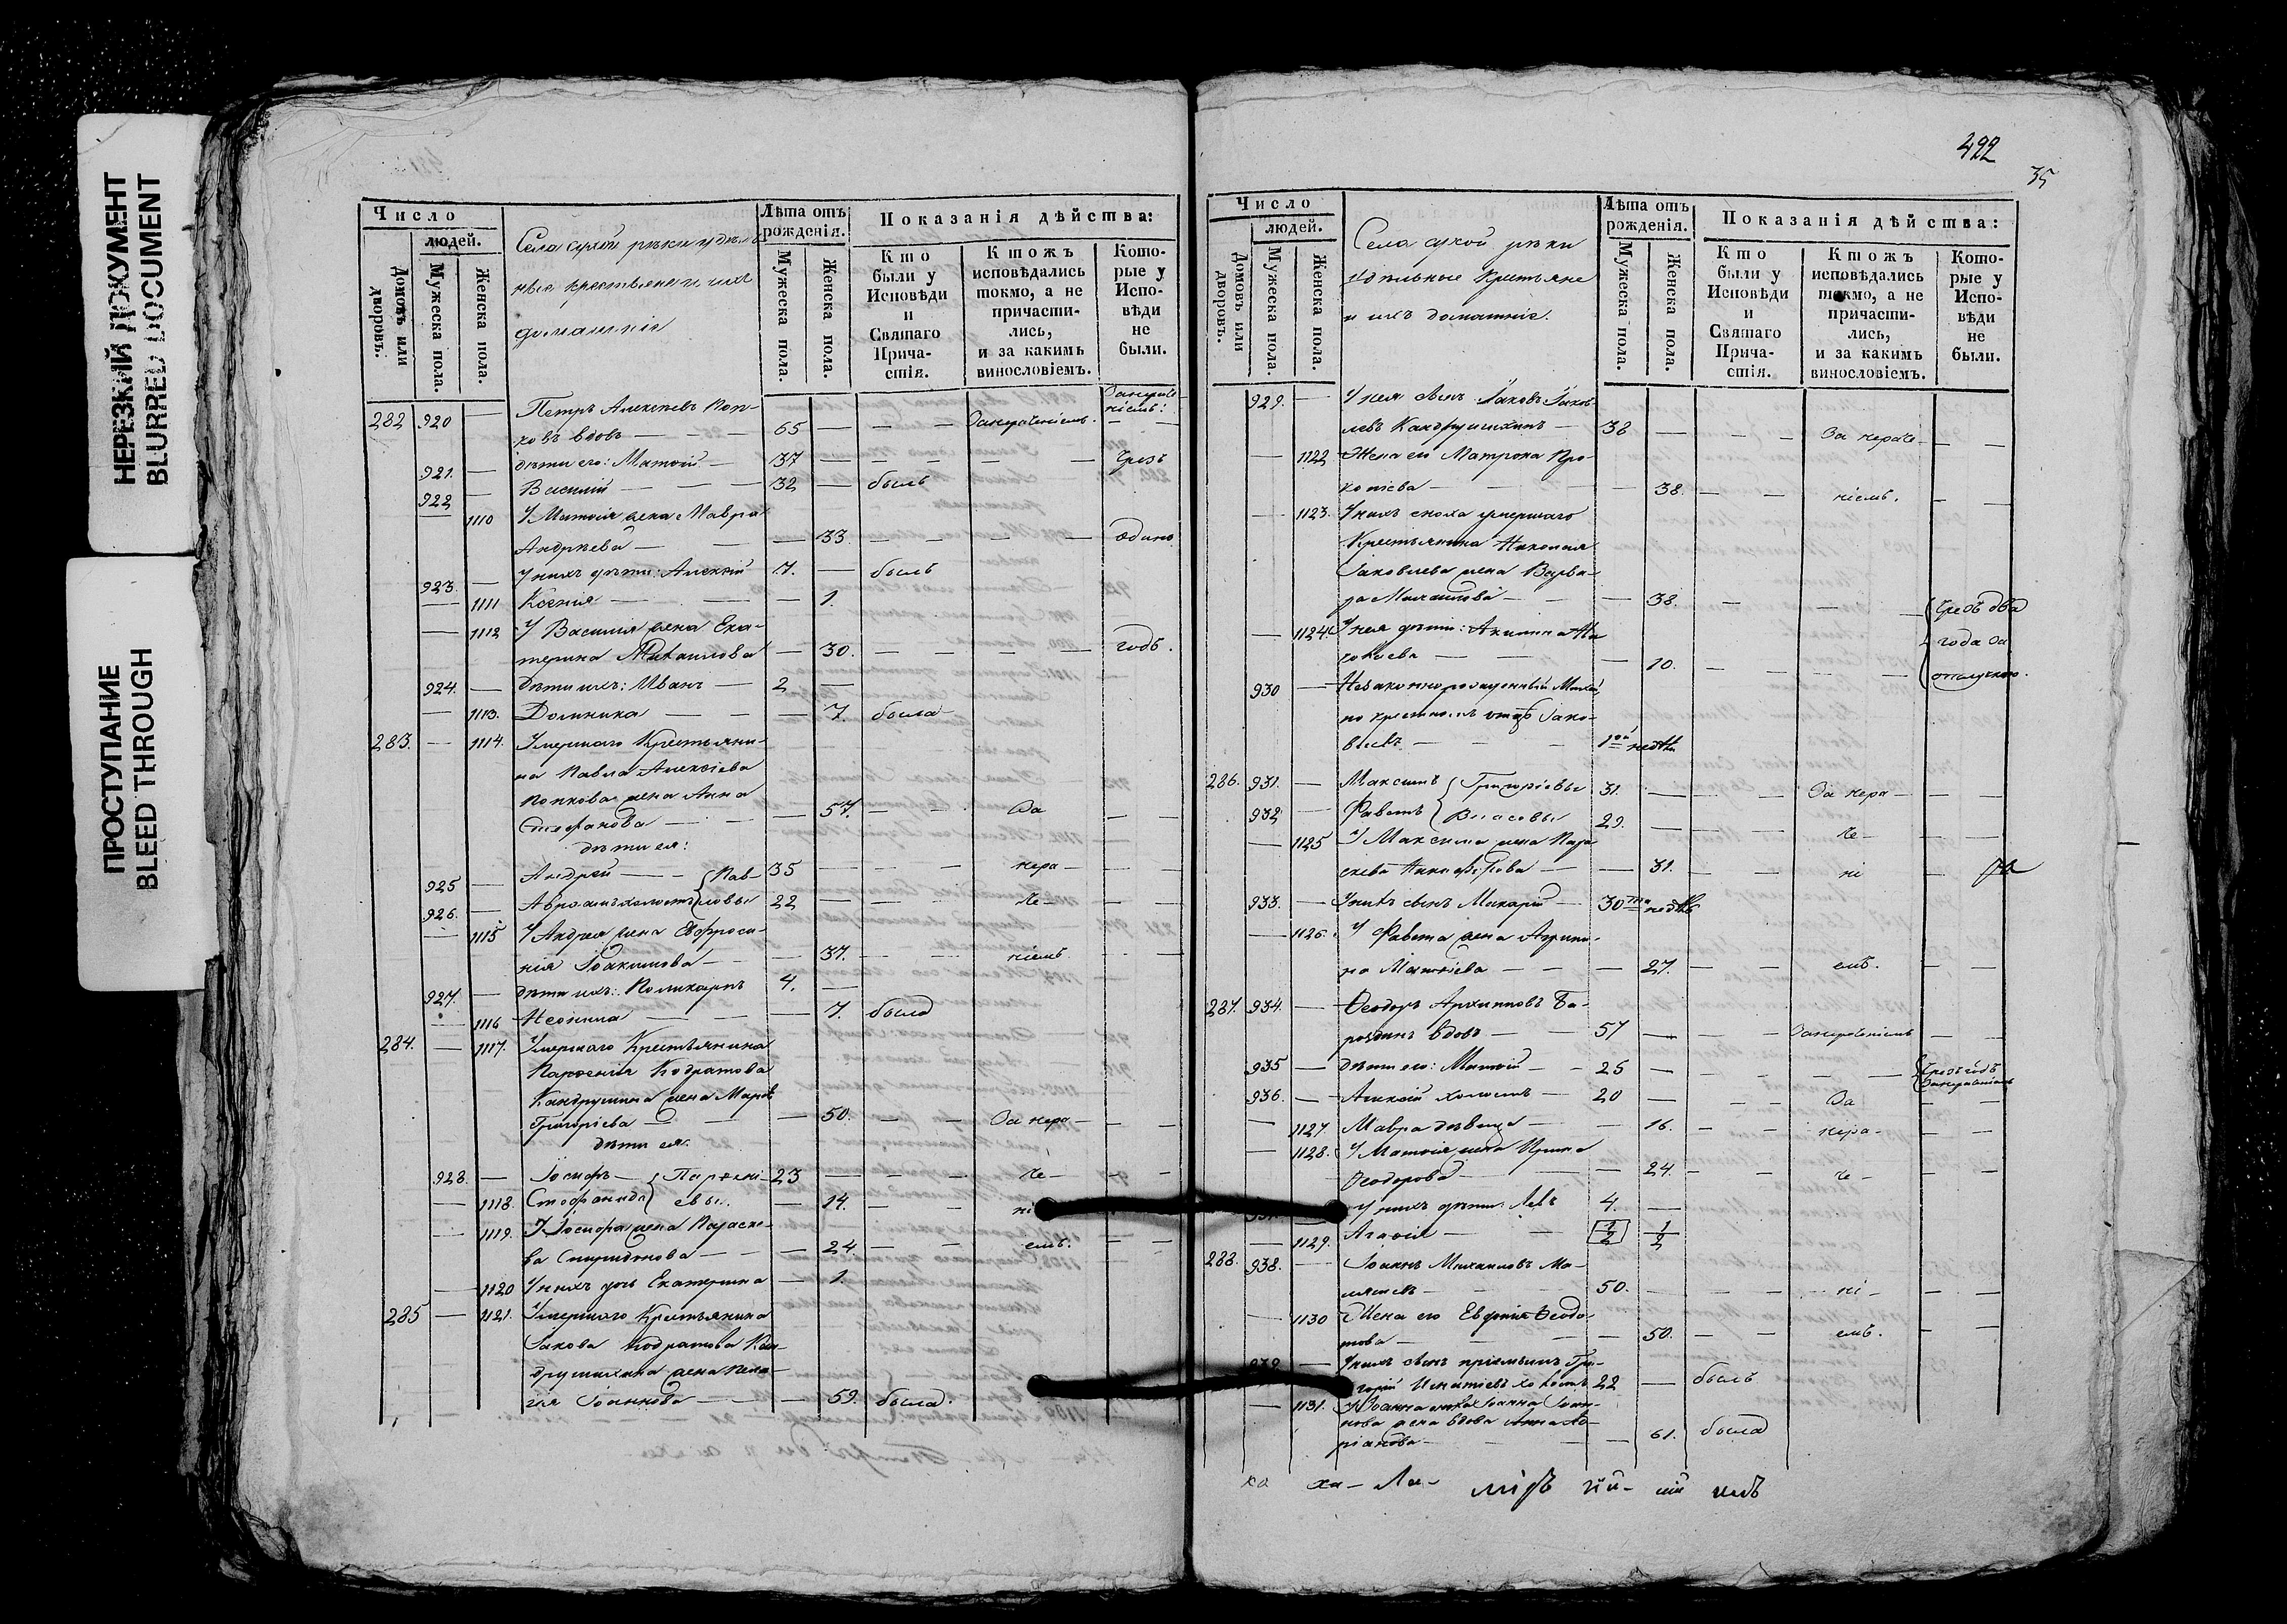 НЕРЕЗКИЙ ДОКУМЕНТ
BLURRED DOCUMENT
ПРОСТУПАНИЕ
BLEED THROUGH
Число
людей.
Домовъ или дворовъ.
Мужеска пола.
Женска пола.
Села сухой рѣки удѣль
ные крестьяне и ихъ
домашніе
Лѣта отъ рожденія.
Мужеска пола.
Женска пола.
Показанія дѣйства:
Кто были у Исповѣди и Святаго Причастія.
Ктожъ исповѣдались токмо, а не причастились, и за какимъ винословіемъ.
Которые у Исповѣди не были.
282 920 — Петръ Алексѣевъ Поп-
ковъ вдовъ — — 65 — — — Занераченіемъ. — —
921. — дѣти его: Матѳій — 37 — — — — — Чрезъ
922 — Василій — — — 32 — былъ
— 1110 У Матѳія жена Мавра
Андрѣева — — — 33. — — — — одинъ
923. — У нихъ дѣти: Алексѣй 7. — былъ
— 1111 Ксенія — — — 1.
— 1112 У Василія жена Ека-
терина Михаилова — 30. — — — — годъ.
924. — Дѣти ихъ: Иванъ — 2 —
— 1113. Домника — — — 7. была
283. — 1114. Умершаго Крестьяни-
на Павла Алексіева
Попкова жена Анна
Стефанова — — — 57. — — За — —
дѣти ея:
925 — Андрей — — { Пав- 35 — — — нера- — —
926. — Авраамъ холостъ { ловы 22 — — — че- — —
— 1115 У Андрея жена Евфроси-
нія Іоакимова — — 37. — — ніемъ. — —
927. — дѣти ихъ: Поликарпъ 4. —
— 1116 Неонила — — — 7. была
284. — 1117. Умершаго Крестьянина
Парѳенія Кодратова
Кандрушина жена Марѳа
Григорієва — — — 50. — — За нера- — —
дѣти ея.
928. — Іосифъ — { Парѳені- 23 — — — че- — —
— 1118. Стефанида { евы. — 14. — —
— 1119. У Іосифа жена Параске-
ва Спиридонова — — — 24. — — емъ. — —
— 1120 У нихъ дочь Екатерина — 1.
285 — 1121. Умершаго Крестьянина
Іакова Кодратова Кан-
друшихина жена Пела-
гія Іоаннова — — — 59. была.
422
35
Число
людей.
Домовъ или дворовъ.
Мужеска пола.
Женска пола.
Села сухой рѣки
удѣльные Крестьяне
и ихъ домашніе.
Лѣта отъ рожденія.
Мужеска пола.
Женска пола.
Показанія дѣйства:
Кто были у Исповѣди и Святаго Причастія.
Ктожъ исповѣдались токмо, а не причастились, и за какимъ винословіемъ.
Которые у Исповѣди не были.
929. — У нея сынъ Іаковъ Іаков-
левъ Кандрушихинъ — 38 — — — За нераче- — —
— 1122 Жена его Матрона Про-
копіева — — — 38. — — ніемъ. — —
— 1123. У нихъ сноха умершаго
Крестьянина Николая
Іаковлева жена Варва-
ра Михаилова — — — 38. — — — Чрезъ два
— 1124. У нея дѣти: Акилина Ни
колаева — — — 10. — — — года за
930 — Незаконнорожденный
по крестномъ отцѣ Іако-
влевъ — — — 1ой недѣли
отлучкою.
286. 931. — Максимъ { Григоріевы 31. — — — За нера- — —
932 — Фавстъ { Власовы 29. — — — че- — —
— 1125 У Максима жена Пара
скева — — 31. — — ні —
933. — У нихъ сынъ Макарій — 30ти недѣль
— 1126. У Фавста жена Агрипи-
на Матѳіева — — — 27. — — емъ. — —
287. 934. — Ѳеодоръ Архиповъ Ба-
роздинъ вдовъ — — 57 — — — Занераченіемъ — —
935 — дѣти его: Матѳій — 25 — — — — — Чрезъ годъ Занераченіемъ
936. — Алексій холостъ — 20 — — — За — —
— 1127 Мавра дѣвица — — 16. — — нера- — —
— 1128. У Матѳія жена Ирина
Ѳеодорова — — 24. — — че-
У нихъ дѣти: Левъ 4. —
— 1129. Агаѳія — — 1/2 1/2
288. 938. — Іоаннъ Михаиловъ Ма-
50. — — — ні- — —
— 1130 Жена его Евфимія Ѳеодо-
това — — — 50. — — емъ. — —
939. — У нихъ сынъ пріемышъ Гри-
горій Игнатіевъ холостъ 22 — былъ
— 1131. Іоанна Іоан-
нова жена вдова Анна
— — 61. была
ка ха- Ла-